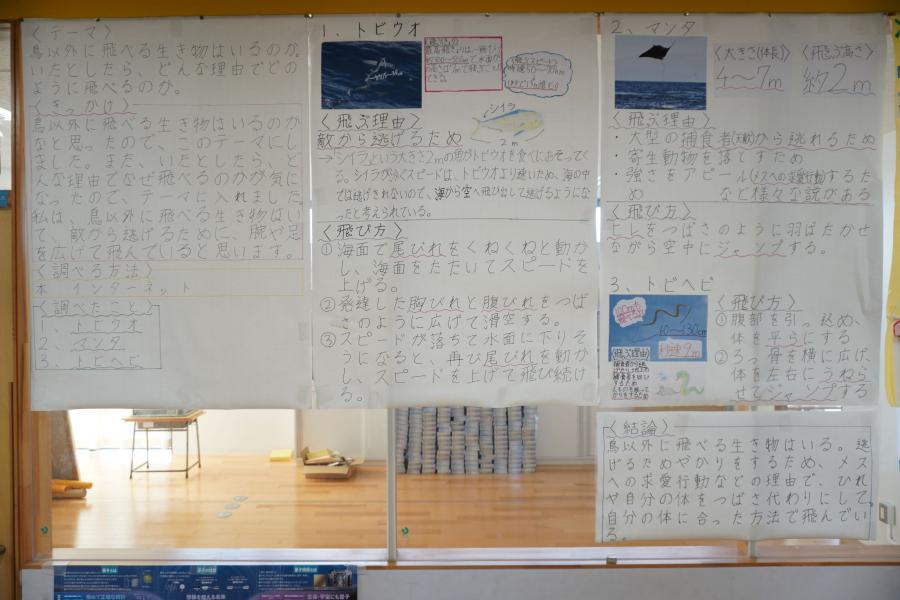 〈テーマ〉
鳥以外に飛べる生き物はいるのか。
いたとしたら、どんな理由でどの
ように飛べるのか。
〈きっかけ〉
鳥以外に飛べる生き物はいるのか
なと思ったので、このテーマにし
ました。また、いたとしたら、ど
んな理由でなぜ飛べるのかが気に
なったので、テーマに入れました。
私は、鳥以外に飛べる生き物はい
て、敵から逃げるために、腕や足
を広げて飛んでいると思います。
〈調べる方法〉
本 インターネット
〈調べたこと〉
1、トビウオ
2、マンタ
3、トビヘビ
1、トビウオ
〈飛ぶ理由〉
シイラ
2m
敵から逃げるため
→シイラという大きさ2mの魚がトビウオを食べにおそってく
る。シイラが泳ぐスピードは、トビウオより速いため、海の中
では逃げきれないので、海から空へ飛び出して逃げるようにな
ったと考えられている。
〈飛び方〉
①海面で尾びれをくねくねと動か
し、海面をたたいてスピードを
上げる。
②発達した胸びれと腹びれをつば
さのように広げて滑空する。
③スピードが落ちて水面に下りそ
うになると、再び尾びれを動か
し、スピードを上げて飛び続け
る。
2、マンタ
〈大きさ(体長)〉
4〜7m
〈飛ぶ高さ〉
約2m
〈飛ぶ理由〉
・大型の捕食者(天敵)から逃れるため
・寄生動物を落とすため
・強さをアピール(メスへの求愛行動)するた
め など様々な説がある
〈飛び方〉
ヒレをつばさのように羽ばたかせ
ながら空中にジャンプする。
3、トビヘビ
60〜130cm
秒速9m
〈飛ぶ理由〉
〈飛び方〉
①腹部を引っ込め、
体を平らにする
②ろっ骨を横に広げ、
体を左右にうねら
せてジャンプする
〈結論〉
鳥以外に飛べる生き物はいる。逃
げるためやかりをするため、メス
への求愛行動などの理由で、ひれ
や自分の体をつばさ代わりにして、
自分の体に合った方法で飛んでい
る。